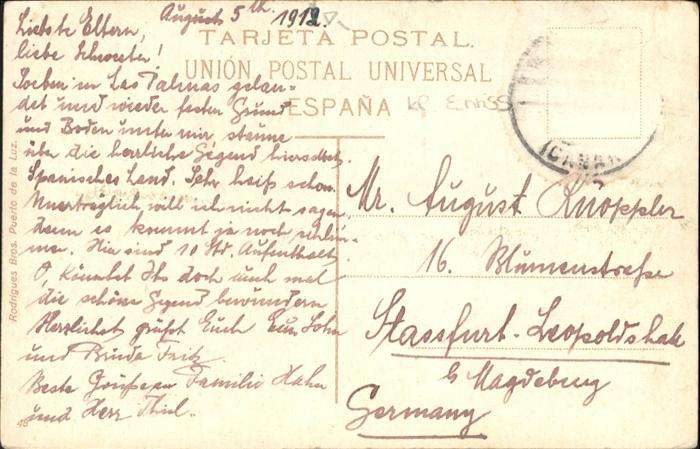 August 5th 1912
Liebste Eltern,
liebe Schwester!
Soeben in Las Palmas gelan-
det und wieder festen Grund
und Boden unter mir, staune
über die herrliche Gegend hierselbst.
Spanisches Land. Sehr heiß schon.
Unerträglich will ich nicht sagen,
denn es kommt ja noch schlim-
mer. Hier sind 10 Std. Aufenthalt.
O, könntet Ihr doch auch mal
die schöne Gegend bewundern
Herzlichst grüßt Euch Euer Sohn
und Bruder Fritz.
Beste Grüße an Familie Hahn
und Herr Thiel.
TARJETA POSTAL.
UNIÓN POSTAL UNIVERSAL
ESPAÑA
Mr. August Knoppler
16. Blumenstraße
Stassfurt-Leopoldshall
b Magdeburg
Germany
Rodrigues Bros. Puerto de la Luz.